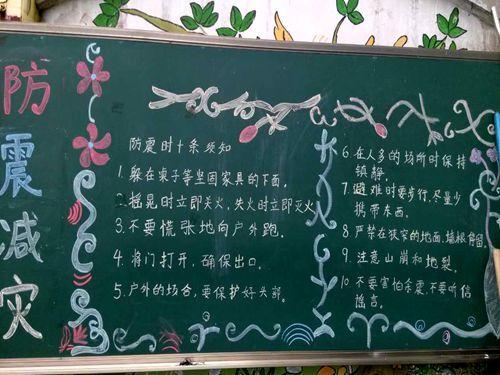 防震减灾
防震时十条须知
1. 躲在桌子等坚固家具的下面。
2. 摇晃时立即关火，失火时立即灭火
3. 不要慌张地向户外跑。
4. 将门打开，确保出口。
5. 户外的场合，要保护好头部。
6. 在人多的场所时保持
镇静。
7. 避难时要步行，尽量少
携带东西。
8. 严禁在狭窄的地面，墙根
9. 注意山崩和地裂。
10. 不要害怕余震，不要听信
谣言。